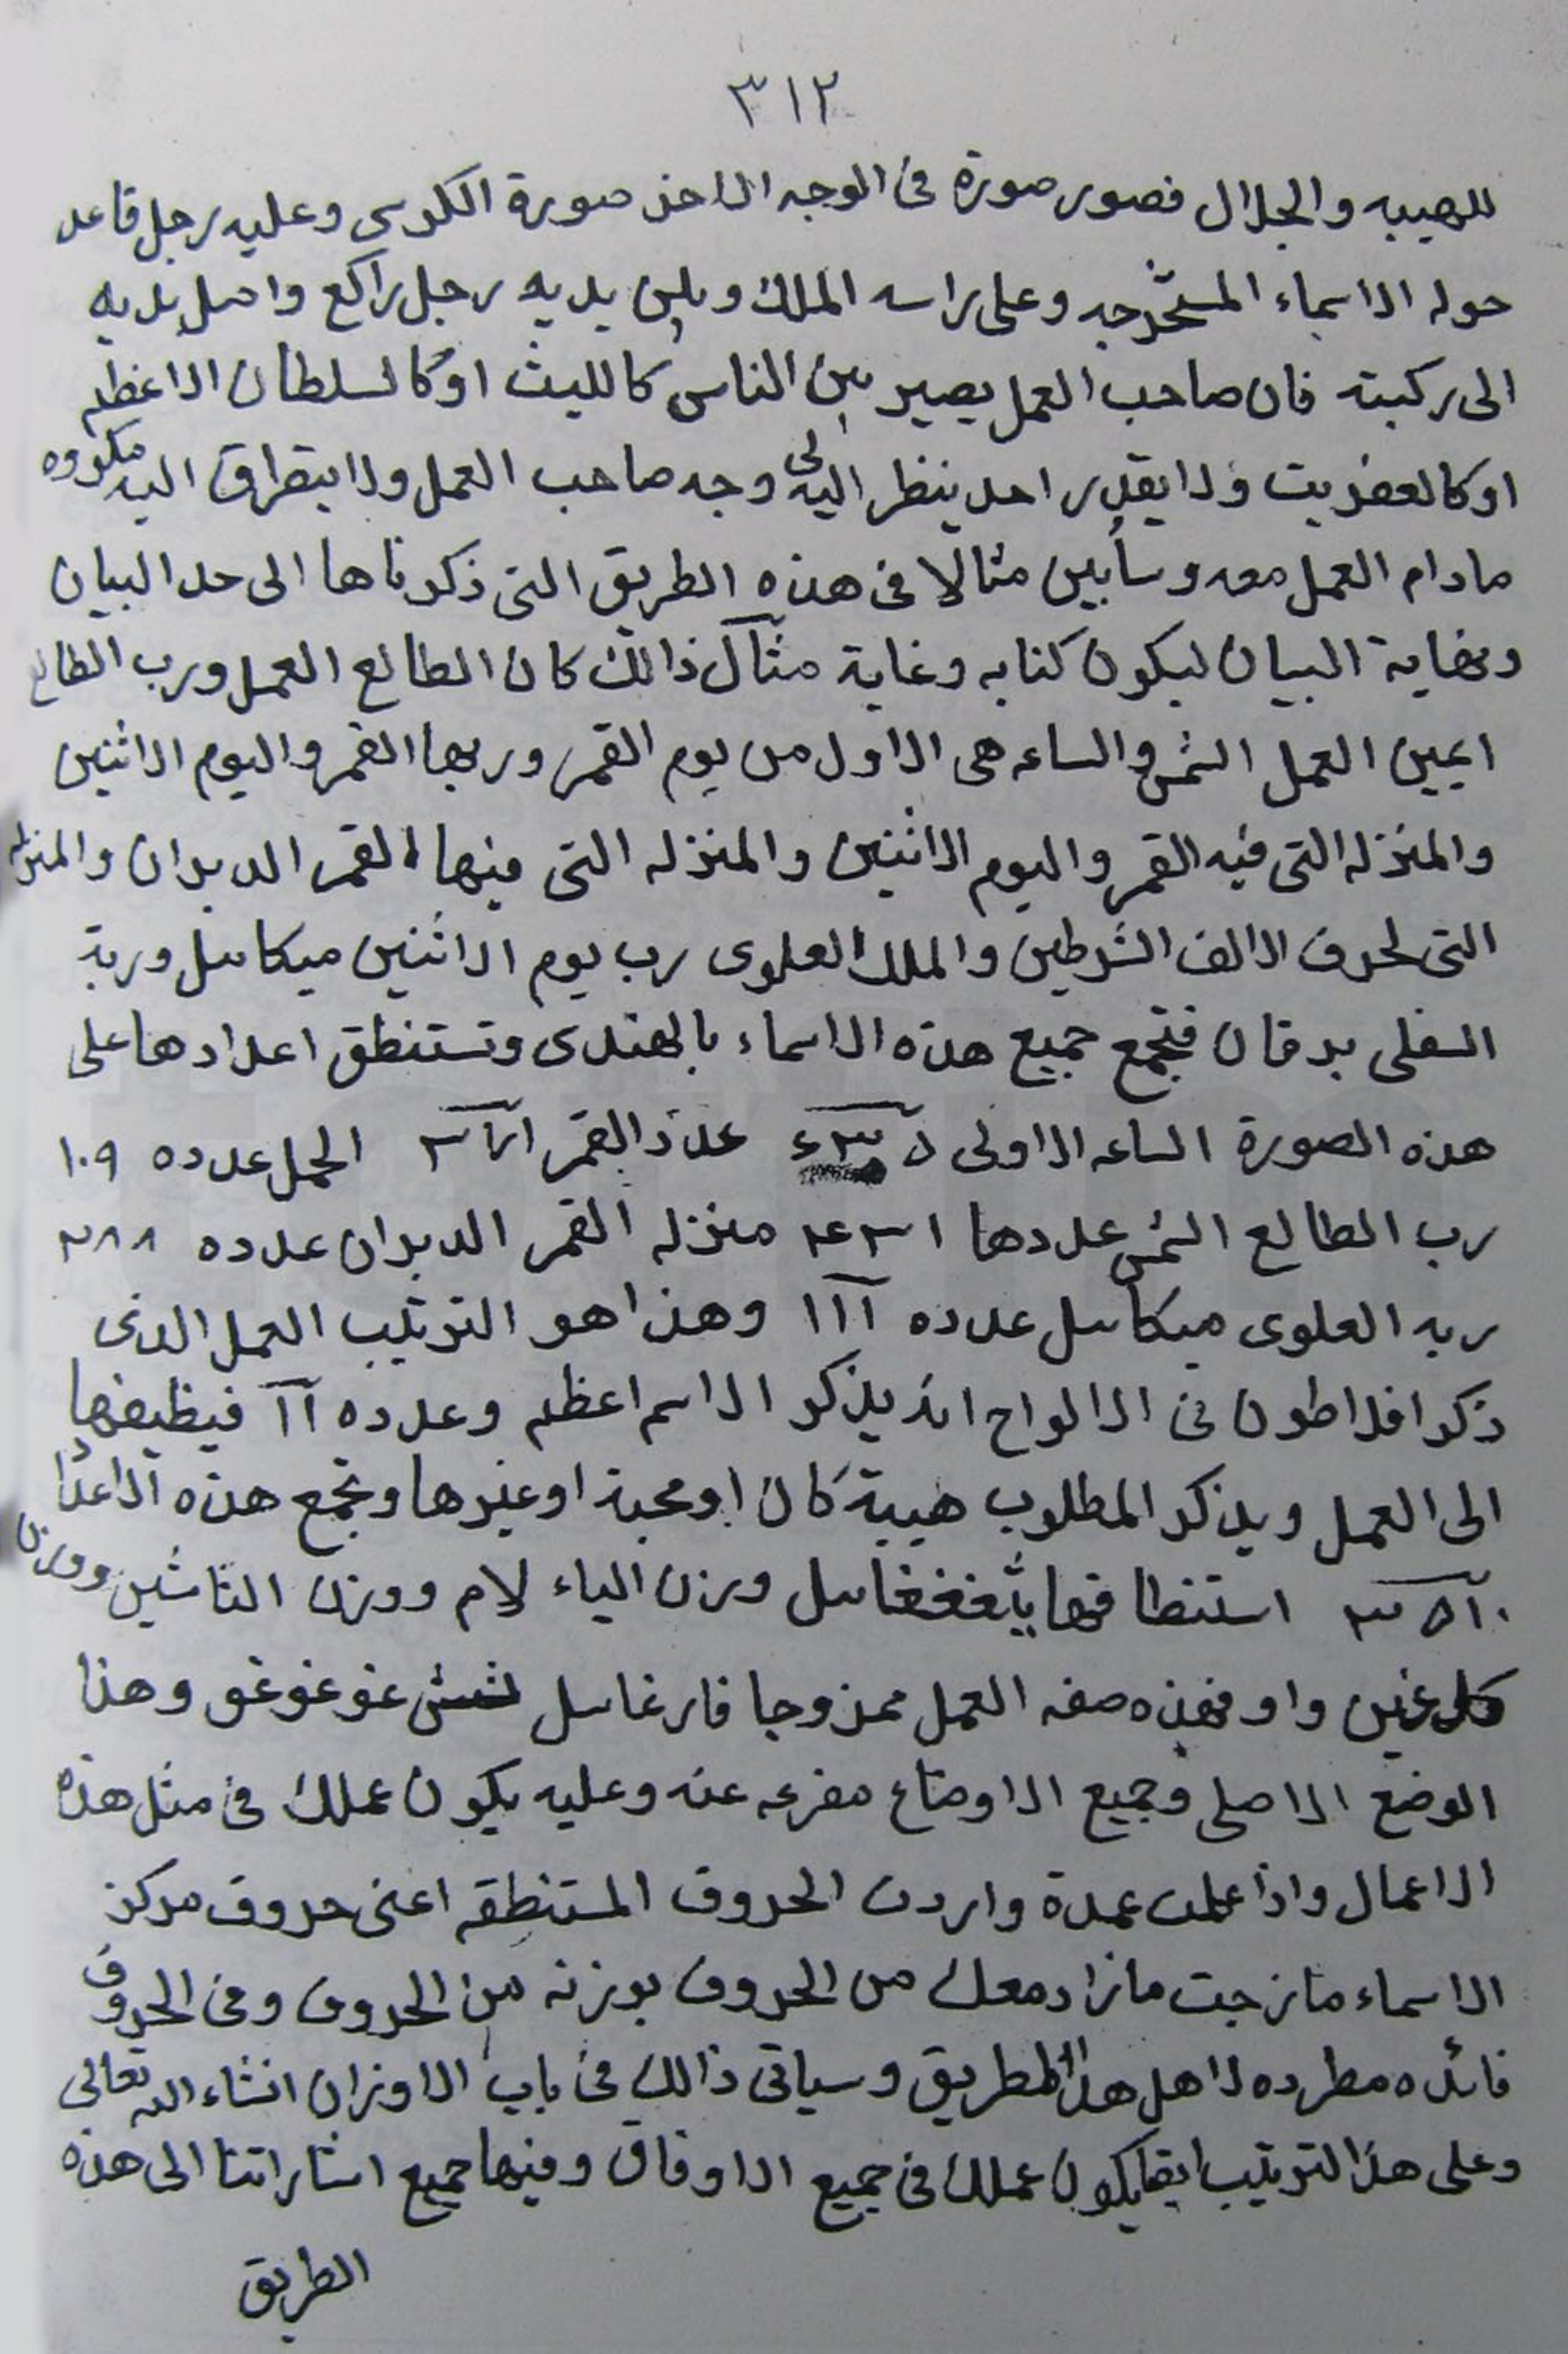 ٣١٢
للهيبه والجلال فصور صورة فى الوجه الاخر صورة الكرسى وعليه رجل قاعد
حوله الاسماء المستخرجه وعلى راسه الملك وبين يديه رجل راكع واصل يديه
الى ركبته فان صاحب العمل يصير بين الناس كالليث او كالسلطان الاعظم
او كالعفريت ولا يقدر احد ينظر اليه لى وجه صاحب العمل ولا يتطراق اليه مكروه
مادام العمل معه وسأبين مثالا فى هذه الطريق التى ذكرناها الى حد البيان
ونهاية البيان ليكون كنايه وغاية مثال ذالك كان الطالع العمل ورب الطالع
ايمين العمل الشمس والساعه هى الاول من يوم القمر وربها القمر واليوم الاثنين
والمنزله التى فيه القمر واليوم الاثنين والمنزله التى فيها القمر الدبران والمنزله
التى لحرف الالف الشرطين والملك العلوى رب يوم الاثنين ميكاىىل وربة
السفلى برقان فتجمع جميع هذه الاسماء بالهندى وتستنطق اعدادها على
هذه الصورة الساعه الاولى عدد القمر الحمل عدده ١٠٩
رب الطالع الشمس عددها منزله القمر الدبران عدده
ربه العلوى ميكاىىل عدده ١١١ وهذا هو الترتيب العمل الذى
ذكر افلاطون فى الالواح انه يذكر الاسم اعظم وعدده ١١ فيظيفها
الى العمل ويذكر المطلوب هيبة كان او محبة او غيرها وتجمع هذه الاعدا
استنطاقها وزن الياء لام ووزن التا شين ووزن
كل غين واو فهذه صفه العمل ممزوجا غوغوغو وهذا
الوضع الاصلى وجميع الاوضاع مفرعه عنه وعليه يكون عملك فى مثل هذه
الاعمال واذا عملت عمدة واردت الحروف المستنطقه اعنى حروف مركز
الاسماء مازجت مازاد معك من الحروف بوزنه من الحروف وفى الحروف
فائده مطرده لاهل هذا الطريق وسياتى ذالك فى باب الاوزان انشاء الله تعالى
وعلى هذا الترتيب ايضا يكون عملك فى جميع الاوفاق وفيها جميع اشاراتنا الى هذه
الطريق